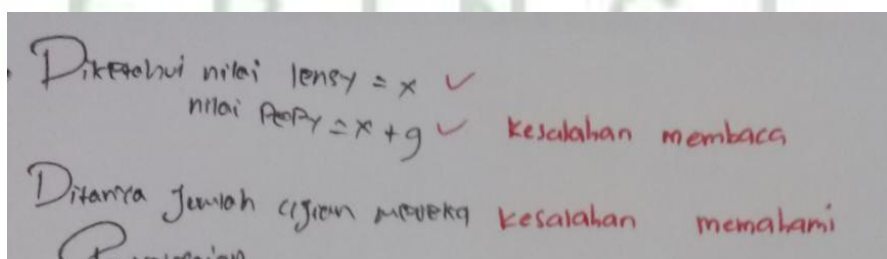 Diketahui nilai lensy = x ✓
nilai Pepy = x + 9 ✓ kesalahan membaca
Ditanya Jumlah ujian mereka kesalahan memahami